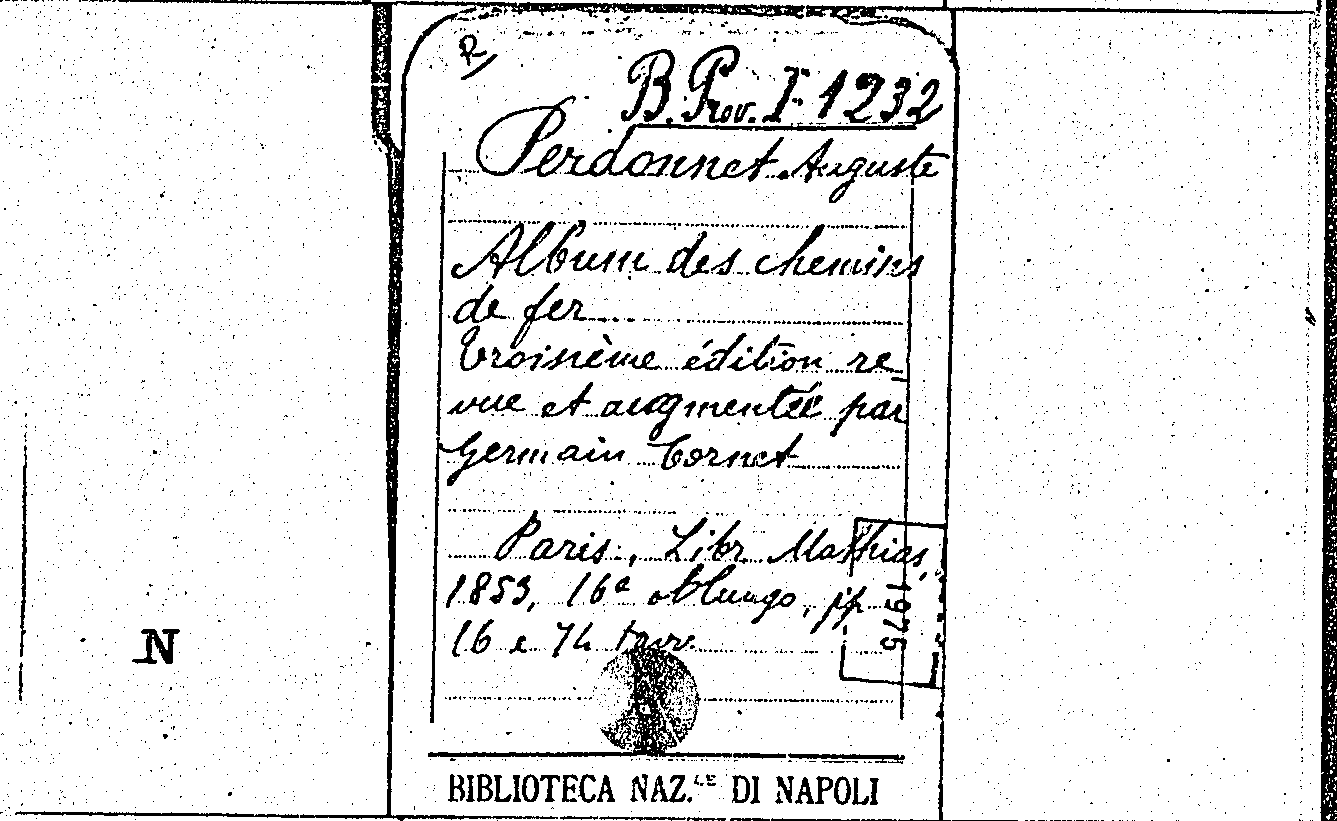 R
B. Prov. I 1232
Perdonnet Auguste
Album des chemins
de fer
Troisième édition re_
vue et augmentée par
Germain Cornet
Paris, Libr. Mathias,
1853, 16° oblungo, pp
16 e 74 tavv.
1975
N
BIBLIOTECA NAZ.LE DI NAPOLI